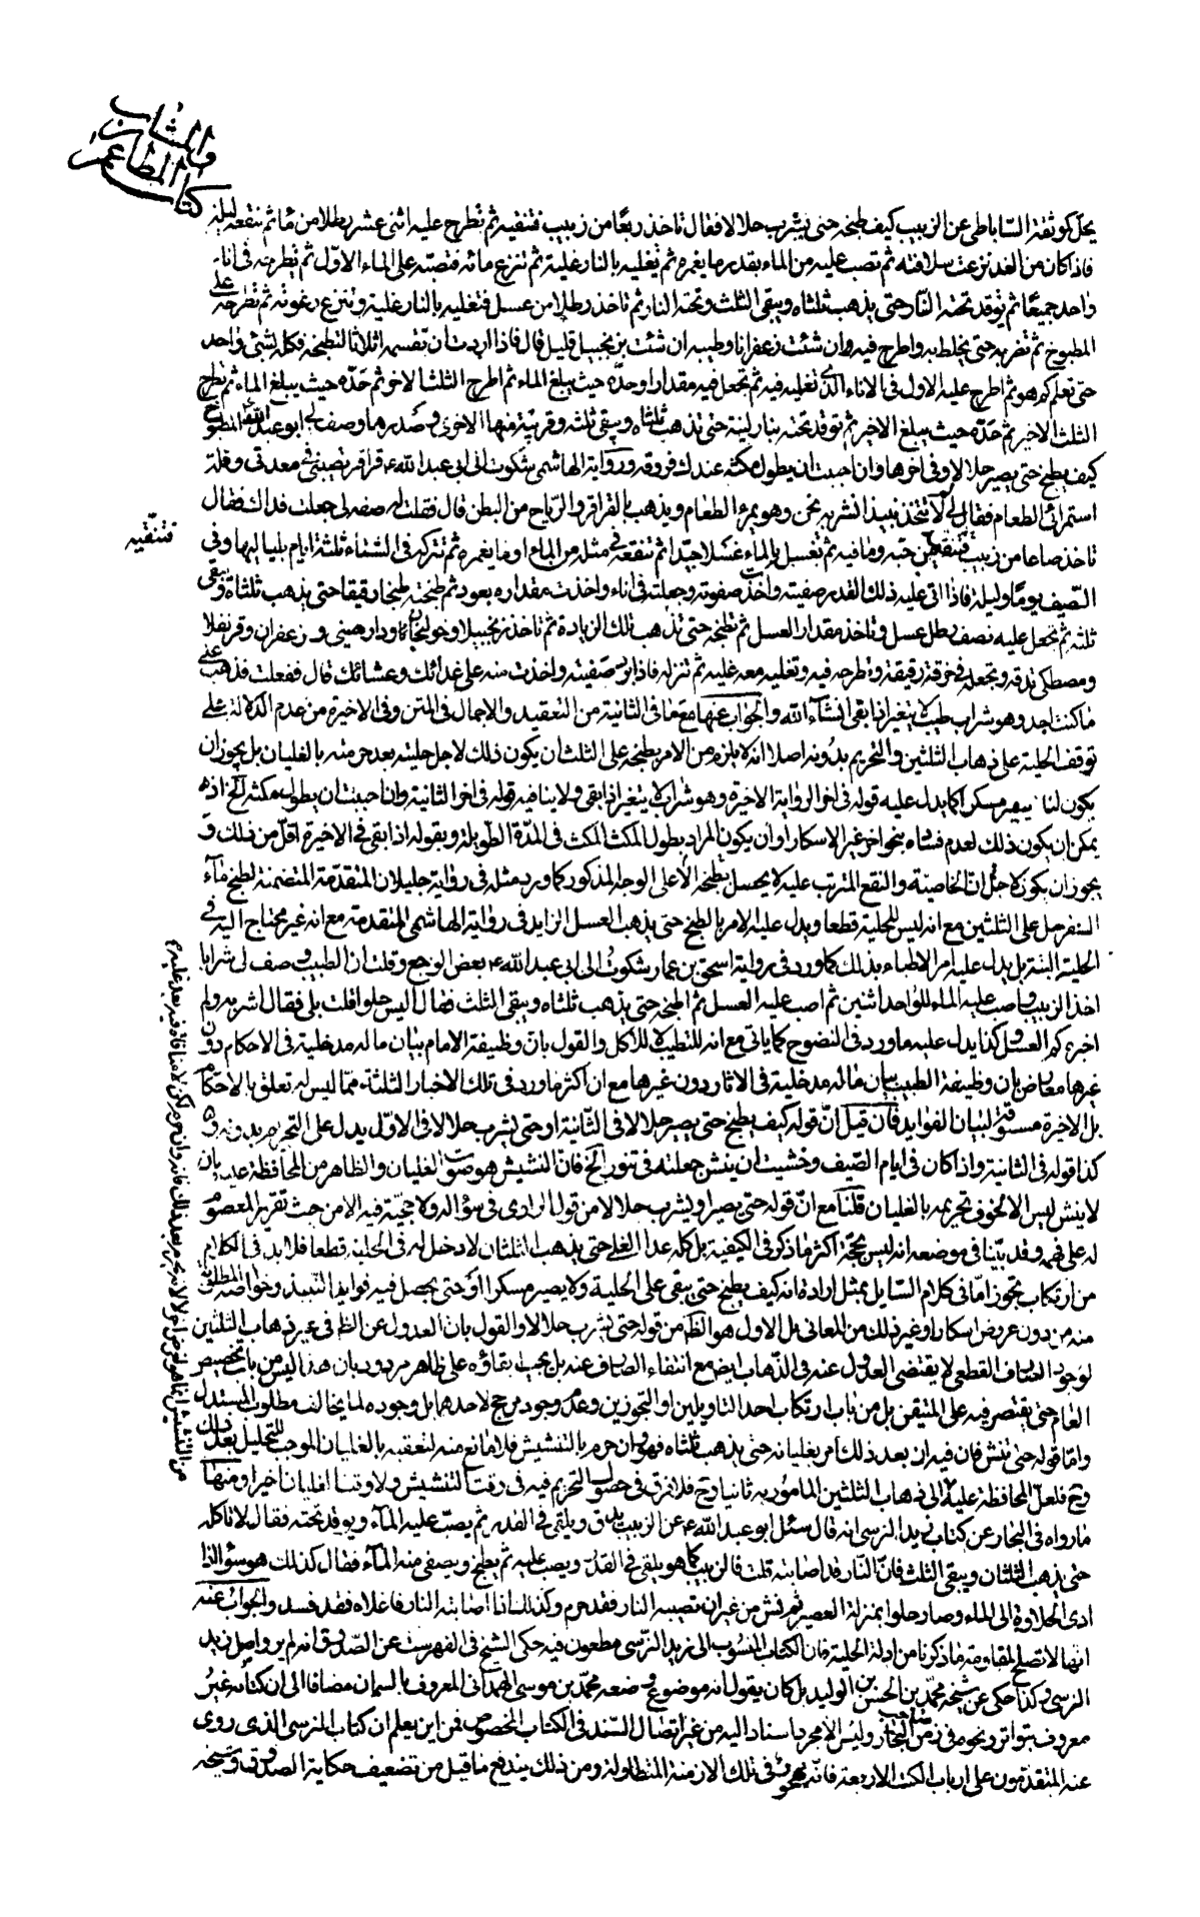 كتاب المطاعم
والمشارب
يحل كموثقة الساباطي عن الزبيب كيف طبخه حتى يشرب حلالا فقال تاخذ ربعا من زبيب فتنقيه ثم تطرح عليه اثنى عشر رطلا من ماء ثم تنقعه ليلة
فاذا كان من الغد نزعت سلافته ثم تصب عليه من الماء بقدر ما يغمره ثم تغليه بالنار غلية ثم تنزع مائه فتصبه على الماء الاوّل ثم تطرحه في اناء
واحد جميعا ثم توقد تحته النار حتى يذهب ثلثاه ويبقى الثلث وتحته النار ثم تاخذ رطلا من عسل فتغليه بالنار غلية وتنزع رغوته ثم تطرحه على
المطبوخ ثم تضربه حتى يختلط به واطرح فيه وان شئت زعفرانا وطيبه ان شئت بزنجبيل قليل قال فاذا اردت ان تقسمه اثلاثا لتطبخه فكله بشئ واحد
حتى تعلم كم هو ثم اطرح عليه الاول في الاناء الذي تغليه فيه ثم تجعل فيه مقدارا وحدّه حيث يبلغ الماء ثم اطرح الثلث الاخر ثم حدّه حيث يبلغ الماء ثم تطرح
الثلث الاخير ثم حدّه حيث يبلغ الاخير ثم توقد تحته بنار لينة حتى تذهب ثلثاه ويبقى ثلثه وقريبة منها الاخرى وصدرها وصف لي ابو عبد الله المطبوخ
كيف يطبخ حتى يصير حلالا وفى اخرها وان احببت ان يطول مكثه عندك فروقه ورواية الهاشمي شكوت الى ابى عبد الله ع قراقر تصيبني في معدتي وقلة
استمرائى الطعام فقال لى لم لا تتخذ نبيذا نشربه نحن وهو يمرء الطعام ويذهب بالقراقر والرياح من البطن قال فقلت له صفه لى جعلت فداك فقال
تاخذ صاعا من زبيب فتنقيه من حبه وما فيه ثم تغسل بالماء غسلا جيدا ثم تنقعه في مثله من الماء او ما يغمره ثم تتركه في الشتاء ثلثة ايام بلياليها وفى
فتنقيه
الصّيف يوما وليلة فاذا اتى عليه ذلك القدر صفيته واخذت صفوته وجعلته في اناء واخذت مقداره بعود ثم طبخته طبخا رقيقا حتى يذهب ثلثاه ويبقى
ثلثه ثم تجعل عليه نصف رطل عسل وتاخذ مقدار العسل ثم تطبخه حتى تذهب تلك الزيادة ثم تاخذ زنجبيلا وخولنجانا ودارصينى وزعفران وقرنفلا
ومصطكى تدقه وتجعله في خرقة رقيقة وتطرحه فيه وتغليه معه غلية ثم تنزله فاذا برد صفيته واخذت منه على غدائك وعشائك قال ففعلت فذهب عنى
ما كنت اجد وهو شراب طيب لا يتغير اذا بقى انشاء الله والجواب عنها مع ما في الثانية من التعقيد والاجمال في المتن وفى الاخيرة من عدم الدلالة على
توقف الحلية على ذهاب الثلثين والتحريم بدونه اصلا انه لا يلزم من الامر بطبخه على الثلث ان يكون ذلك لاجل حليته بعد حرمته بالغليان بل يجوز ان
يكون لئلا يصير مسكرا كما يدل عليه قوله في اخر الرواية الاخيرة وهو شراب لا يتغير اذا بقى ولا ينافيه قوله في اخر الثانية وان احببت ان يطول مكثه الخ اذ
يمكن ان يكون ذلك لعدم فساده بنحو اخر غير الاسكار او ان يكون المراد بطول المكث المكث في المدة الطويلة وبقوله اذا بقى في الاخيرة اقل من ذلك و
يجوز ان يكون لاجل ان الخاصية والنفع المترتب عليه لا يحصل بطبخه الا على الوجه المذكور كما ورد مثله في رواية خليلان المتقدمة المتضمنة لطبخ ماء
السفرجل على الثلثين مع انه ليس للحلية قطعا ويدل عليه الامر بالطبخ حتى يذهب العسل الزايد في رواية الهاشمي المتقدمة مع انه غير محتاج اليه في
الحلية البتة بل يدل عليه امر الاطباء بذلك كما ورد في رواية اسحق بن عمار شكوت الى ابى عبد الله ع بعض الوجع وقلت ان الطبيب وصف لى شرابا
اخذ الزبيب واصب عليه الماء للواحد اثنين ثم اصب عليه العسل ثم اطبخه حتى يذهب ثلثاه ويبقى الثلث فقال اليس حلوا قلت بلى فقال اشربه ولم
اخبره كم العسل وكذا يدل عليه ما ورد في النضوح كما ياتى مع انه للتطيب لا للاكل والقول بان وظيفة الامام بيان ما له مدخلية في الاحكام دون
غيرها معارض بان وظيفة الطبيب بيان ما له مدخلية في الاثار دون غيرها مع ان اكثر ما ورد في تلك الاخبار الثلثة مما ليس له تعلق بالاحكام
بل الاخيرة مسوقة لبيان الفوايد فان قيل انّ قوله كيف يطبخ حتى يصير حلالا في الثانية او حتى يشرب حلالا في الاوّل يدل على التحريم بدونه و
كذا قوله في الثانية واذا كان في ايام الصّيف وخشيت ان ينش جعلته في تنور الخ فان النشيش هو صوت الغليان والظاهر من المحافظة عليه بان
لا ينش ليس الا لخوف تحريمه بالغليان قلنا مع انّ قوله حتى يصير او يشرب حلالا من قول الراوى في سؤاله ولا حجيّة فيه الا من حيث تقرير المعصوم
له على فهمه وقد بيّنا في موضعه انه ليس بحجّة اكثر ما ذكر في الكيفية بل كله عدا الغلى حتى يذهب الثلثان لا دخل له في الحلية قطعا فلا بد في الكلام
من ارتكاب تجوز امّا في كلام السّايل بمثل ارادة انه كيف يطبخ حتى يبقى على الحلية ولا يصير مسكرا او حتى يحصل فيه فوايد النبيذ وخواصه المطلوبة
منه من دون عروض اسكار او غير ذلك من المعانى بل الاول هو الظ من قوله حتى يشرب حلالا والقول بان العدول عن الظ في غير ذهاب الثلثين
لوجود الصّارف القطعى لا يقتضى العدول عنه في الذّهاب ايض مع انتفاء الصّارف عنه بل يجب ابقاؤه على ظاهره مردود بان هذا ليس من باب تخصيص
العام حتى يقتصر فيه على المتيقن بل من باب ارتكاب احد التاويلين او التجوزين وعدم وجود مرجح لاحدهما بل وجوده لما يخالف مطلوب المستدل
وامّا قوله حتى تنش فان فيه ان بعد ذلك امر بغليانه حتى يذهب ثلثاه فهو وان حرم بالنشيش فلا مانع منه لتعقبه بالغليان الموجب للتحليل بعد ذلك
وح فلعل المحافظة عليه الى ذهاب الثلثين المامور به ثانيا وح فلا فرق في حصول التحريم فيه في وقت النشيش ولا وقت الغليان اخيرا ومنها
ما رواه في البحار عن كتاب زيد النرسى انه قال سئل ابو عبد الله ع عن الزبيب يدق ويلقى في القدر ثم يصبّ عليه الماء ويوقد تحته فقال لا تاكله
حتى يذهب الثلثان ويبقى الثلث فانّ النّار قد اصابته قلت فالزبيب كما هو يلقى في القدر ويصب عليه ثم يطبخ ويصفى منه الماء فقال كذلك هو سواء اذا
ادى الحلاوة الى الماء وصار حلوا بمنزلة العصير ثم نش من غير ان تصيبه النار فقد حرم وكذلك اذا اصابته النار فاغلاه فقد فسد والجواب عنه
انها لا تصلح لمقاومة ما ذكرنا من ادلة الحلية فان الكتاب المنسوب الى زيد النرسى مطعون فيه حكى الشيخ في الفهرست عن الصّدوق انه لم يرو اصل زيد
النرسى وكذا حكى عن شيخه محمّد بن الحسن بن الوليد بل كان يقول انه موضوع وضعه محمّد بن موسى الهمدانى المعروف بالسمان مضافا الى ان كتابه غير
معروف بتواتر ونحوه في زمن صاحب البحار وليس الا مجرد اسناد اليه من غير اتصال السّند في الكتاب المخصوص فمن اين يعلم ان كتاب النرسى الذى روى
عنه المتقدمون على ارباب الكتب الاربعة فانّه نحوت في تلك الازمنة المتطاولة ومن ذلك يندفع ما قيل من تضعيف حكاية الصدوق وشيخه
من النشيش انما هو لغرض اخر لا لانه يحرم بعد ذلك فانه وان حرم لكن لا منافاة فيه بعد غليه م